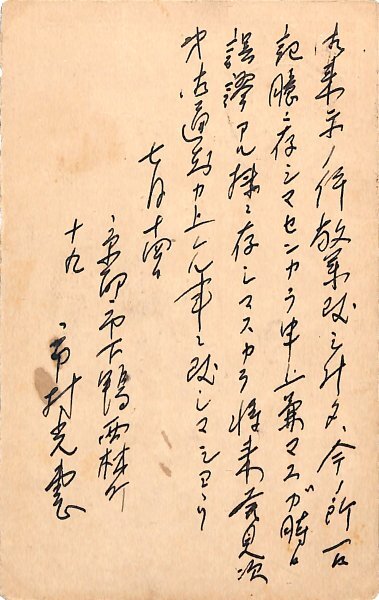 御来示ノ件敬承致シ升タ、今ノ所一
記憶ニ存シマセンカラ申上兼マスガ時日
誤謬アル様ニ存シマスカラ将来発見次
第御通知上ル事ニ致シマシヨウ
七月十四日
京都市下鴨西林町
十九 市村光恵